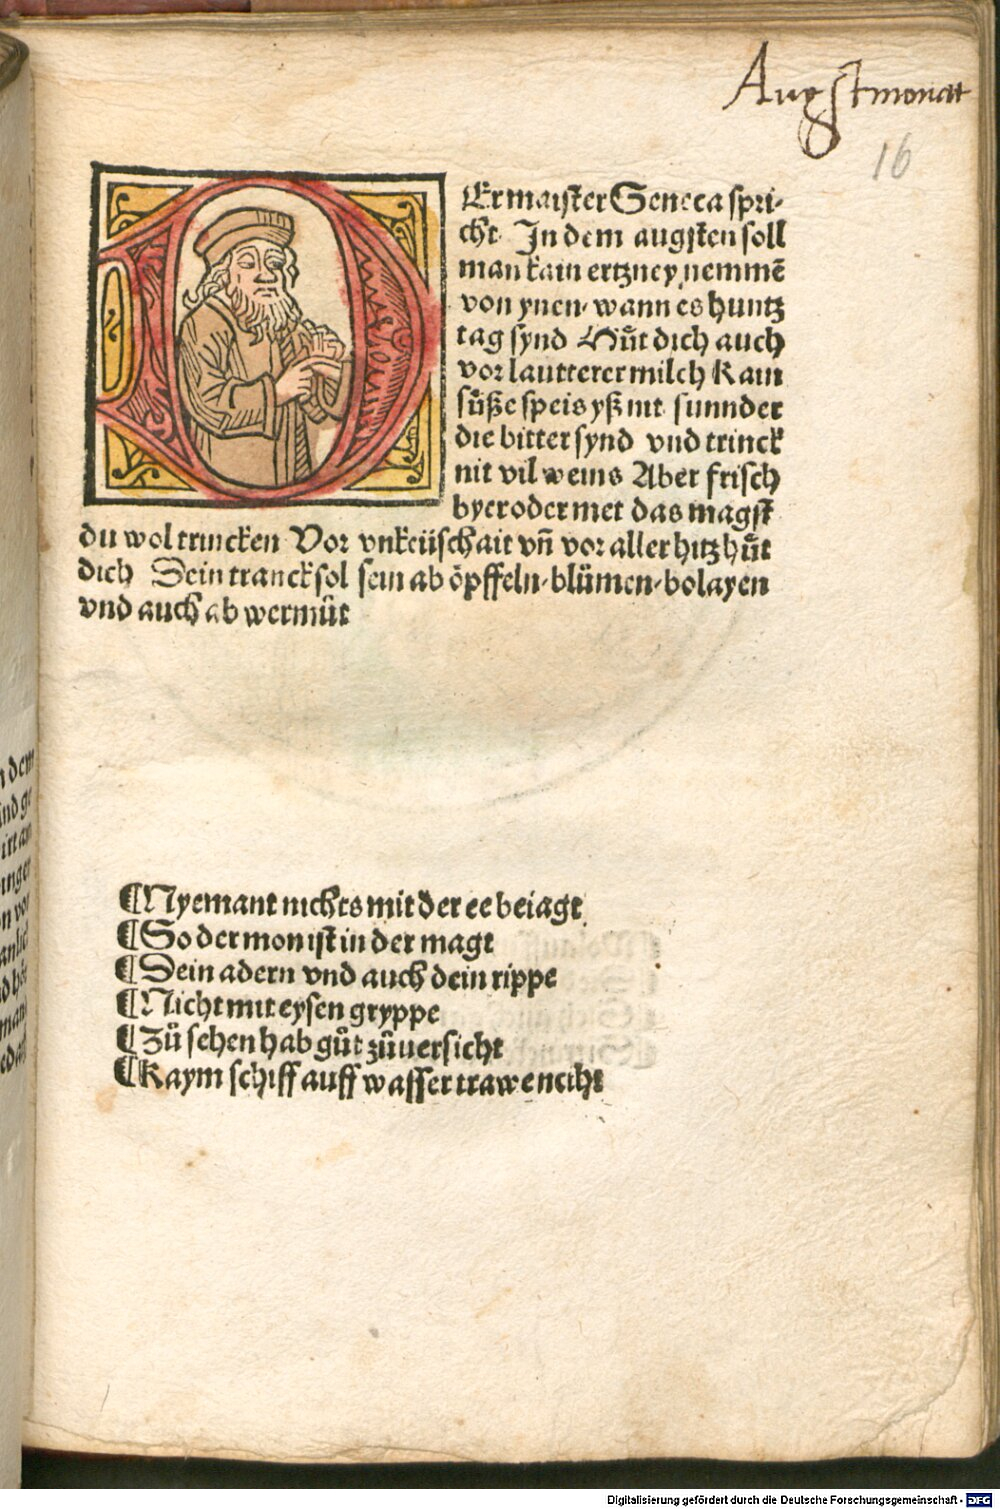 Augstmonat
16
DEr maister Seneca spri-
cht. In dem augsten soll
man kain ertzney nemmē
von ynen· wann es huntz
tag synd Hu̇t dich auch
vor lautterer milch Kain
sůsse speis yß nit sunnder
die bitter synd vnd trinck
nit vil weins Aber frisch
byer oder met das magst
du wol trincken Vor vnkeüschait vn̄ vor aller hitz hůt
dich Dein tranck sol sein ab öpffeln· blümen· bolayen
vnd auch ab wermůt
¶Nyemant nichts mit der ee beiagt
¶So der mon ist in der magt
¶Dein adern vnd auch dein rippe
¶Nicht mit eysen gryppe
¶Zů sehen hab gůt zůuersicht
¶Kaym schiff auff wasser traw enicht
n dem
ind ge
Digitalisierung gefördert durch die Deutsche Forschungsgemeinschaft - DFG